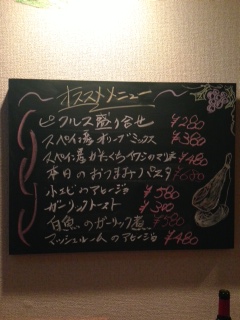 オススメメニュー
ピクルス盛り合せ ¥280
スペイン産オリーブミックス ¥380
スペイン産かたくちイワシのマリネ ¥480
本日のおつまみパスタ ¥680
小エビのアヒージョ ¥580
ガーリックトースト ¥300
白魚のガーリック煮 ¥580
マッシュルームのアヒージョ ¥480